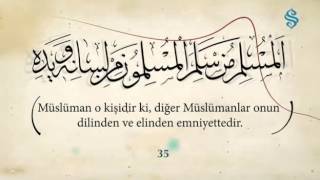 المسلم من سلم المسلمون من لسانه ويده
Müslüman o kişidir ki, diğer Müslümanlar onun
dilinden ve elinden emniyettedir.
35